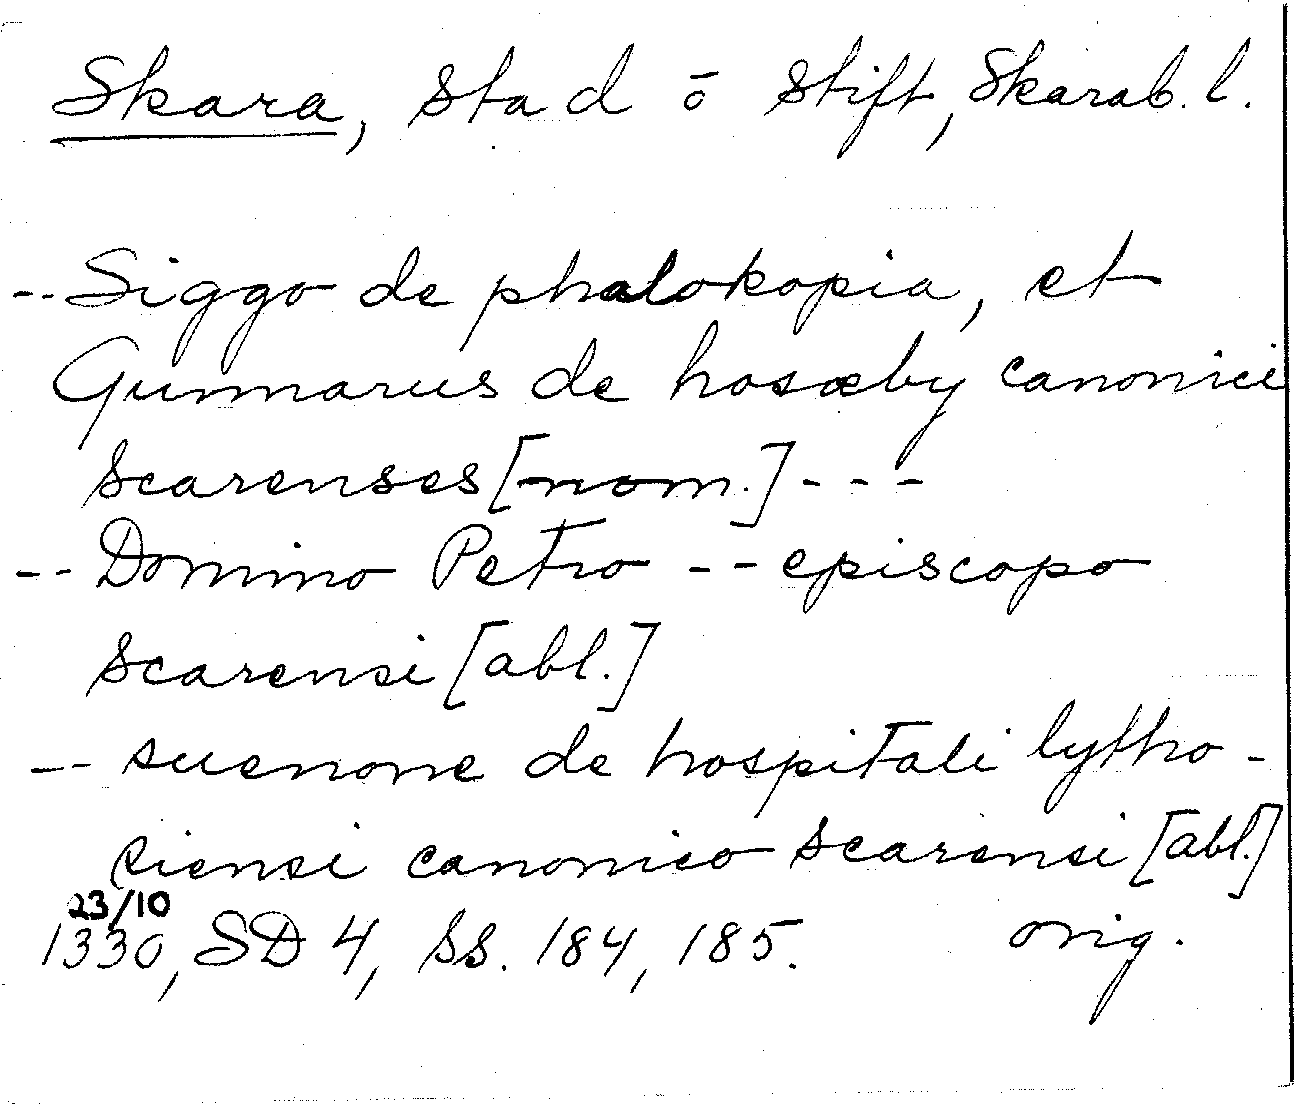 Skara, stad o stift, Skarab. l.
-- Siggo de phalokopia, et
Gunnarus de hosæby canonici
scarenses [nom.] ---
-- Domino Petro -- episcopo
scarensi [abl.]
-- suenone de hospitali lytho-
ciensi canonico scarensi [abl.]
23/10
1330, SD 4, ss. 184, 185. orig.